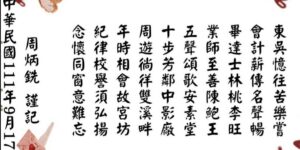 東吳憶往苦樂嘗
會計薪傳名聲暢
畢達士林桃李旺
業師至善陳鮑王
五聲頌歌安素堂
十步芳鄰中影廠
周遊徜徉雙溪畔
年時相會故宮坊
紀律校譽須弘揚
念懷同窗意難忘
周炳銑 謹記
中華民國111年9月17